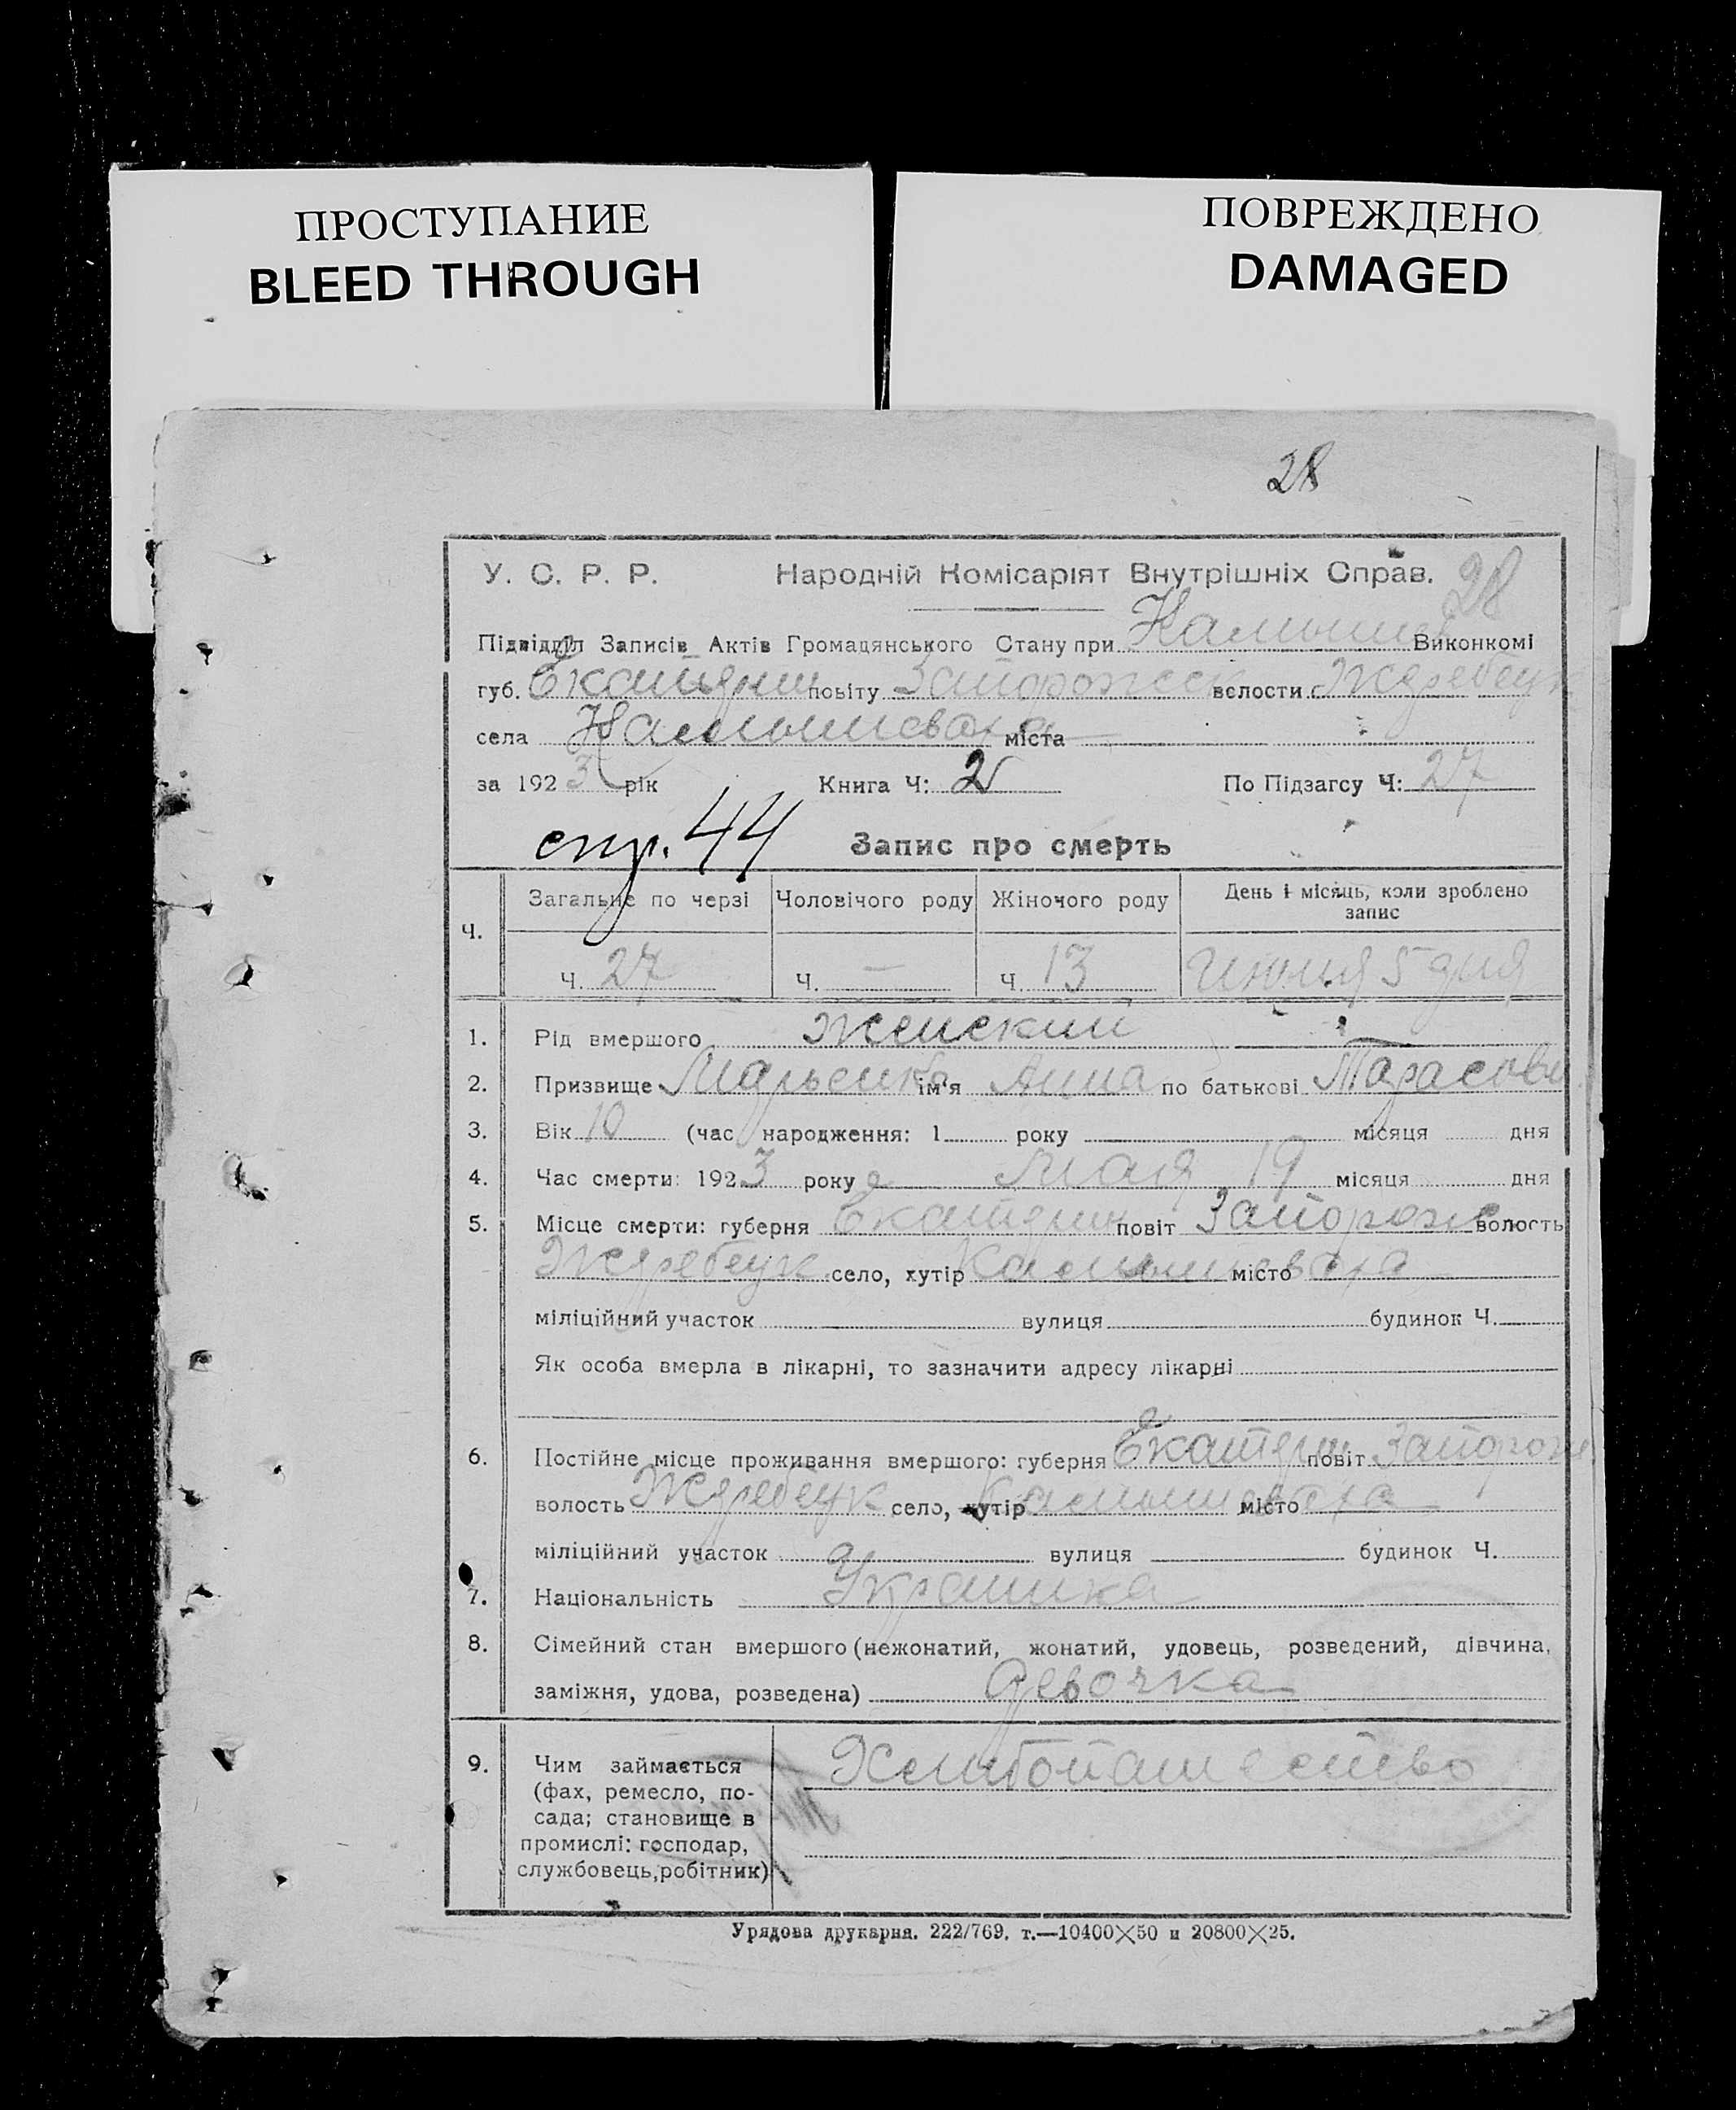 ПРОСТУПАНИЕ
BLEED THROUGH
ПОВРЕЖДЕНО
DAMAGED
28
У. С. Р. Р. Народній Комісаріят Внутрішніх Справ. 28
Підвідділ Записів Актів Громадянського Стану при Камышев Виконкомі
губ. Екатерин повіту Запорожск волости Жеребецк
села Камышеваха міста
за 1923 рік Книга Ч: 2 По Підзагсу Ч: 27
стр. 44 Запис про смерть
Ч. Загальне по черзі Чоловічого роду Жіночого роду День і місяць, коли зроблено запис
Ч. 27 Ч. — Ч. 13 Июня 5 дня
1. Рід вмершого Женский
2. Призвище Марьенко ім'я Анна по батькові Тарасовн
3. Вік 10 (час народження: 1 року місяця дня
4. Час смерти: 1923 року Мая 19 місяця дня
5. Місце смерти: губерня Екатерин повіт Запорож волость
Жеребецк село, хутір Камышеваха місто
міліційний участок вулиця будинок Ч.
Як особа вмерла в лікарні, то зазначити адресу лікарні
6. Постійне місце проживання вмершого: губерня Екатерин повіт Запорож
волость Жеребецк село, хутір Камышеваха місто
міліційний участок вулиця будинок Ч.
7. Національність Украинка
8. Сімейний стан вмершого (нежонатий, жонатий, удовець, розведений, дівчина,
заміжня, удова, розведена) Девочка
9. Чим займається Хлебопашество
(фах, ремесло, по-
сада; становище в
промислі: господар,
службовець, робітник)
Урядова друкарня. 222/769. т.—10400×50 и 20800×25.